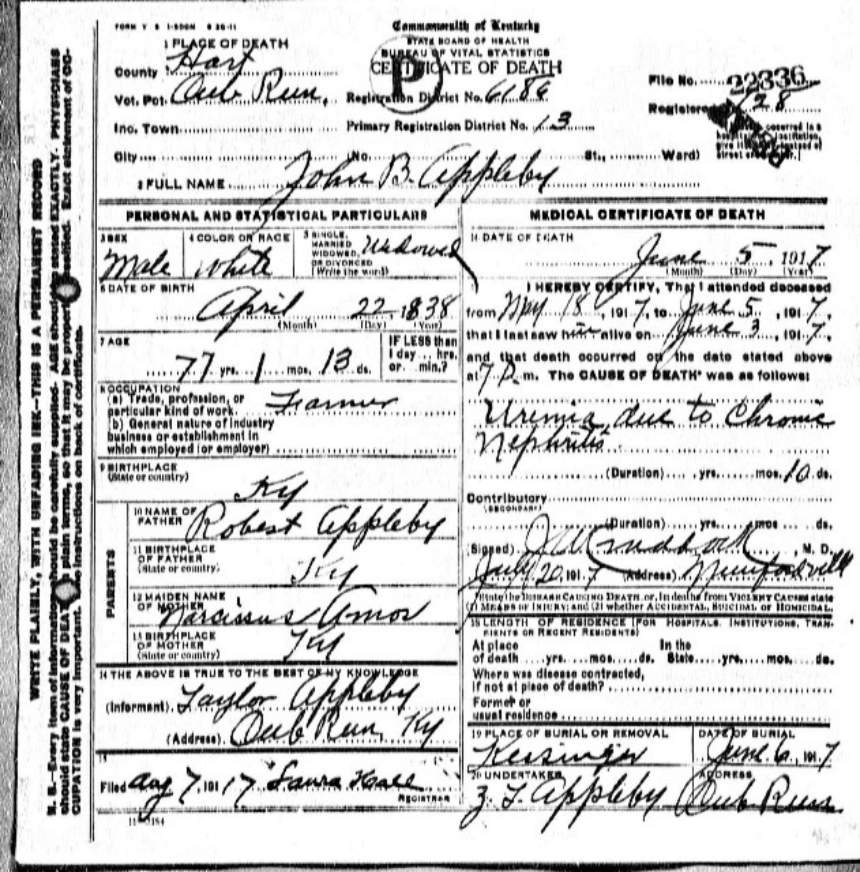 FORM V. S. 1-500M 8 26-11
Commonwealth of Kentucky
STATE BOARD OF HEALTH
BUREAU OF VITAL STATISTICS
CERTIFICATE OF DEATH
P
1 PLACE OF DEATH
County Hart
Vot. Pct. Cub Run,
Inc. Town
City
Registration District No. 6186
Primary Registration District No. 13
(No. St., Ward)
File No. 22336
Registered 28
2 FULL NAME John B. Appleby
PERSONAL AND STATISTICAL PARTICULARS
3 SEX Male
4 COLOR OR RACE White
5 SINGLE, MARRIED WIDOWED, OR DIVORCED (Write the word) Widowed
6 DATE OF BIRTH
April 22 1838
(Month) (Day) (Year)
7 AGE
77 yrs. 1 mos. 13 ds.
IF LESS than
1 day .. hrs.
or ... min.?
8 OCCUPATION
(a) Trade, profession, or
particular kind of work. Farmer
(b) General nature of industry
business or establishment in
which employed (or employer)
9 BIRTHPLACE
(State or country) Ky
PARENTS
10 NAME OF
FATHER Robert Appleby
11 BIRTHPLACE
OF FATHER
(State or country) Ky
12 MAIDEN NAME
OF MOTHER Narcissus Amos
13 BIRTHPLACE
OF MOTHER
(State or country) Ky
14 THE ABOVE IS TRUE TO THE BEST OF MY KNOWLEDGE
(Informant) Taylor Appleby
(Address) Cub Run, Ky
15
Filed Aug 7, 1917 Laura Hall
REGISTRAR
MEDICAL CERTIFICATE OF DEATH
16 DATE OF DEATH
June 5 1917
(Month) (Day) (Year)
I HEREBY CERTIFY, That I attended deceased
from May 18, 1917, to June 5, 1917,
that I last saw him alive on June 3, 1917,
and that death occurred on the date stated above
at 7 P. m. The CAUSE OF DEATH* was as follows:
Uremia due to Chronic
Nephritis
(Duration) yrs. mos. 10 ds.
Contributory
(SECONDARY)
(Duration) yrs. mos. ds.
(Signed) M. D.
July 20, 1917 (Address) Munfordville
*State the DISEASE CAUSING DEATH, or, in deaths from VIOLENT CAUSES state
(1) MEANS OF INJURY; and (2) whether ACCIDENTAL, SUICIDAL or HOMICIDAL.
18 LENGTH OF RESIDENCE (FOR HOSPITALS, INSTITUTIONS, TRAN-
SIENTS OR RECENT RESIDENTS)
At place In the
of death yrs. mos. ds. State yrs. mos. ds.
Where was disease contracted,
if not at place of death?
Former or
usual residence
19 PLACE OF BURIAL OR REMOVAL DATE OF BURIAL
Kessinger June 6, 1917
20 UNDERTAKER ADDRESS
Z. T. Appleby Cub Run
WRITE PLAINLY, WITH UNFADING INK—THIS IS A PERMANENT RECORD
N. B.—Every item of information should be carefully supplied. AGE should be stated EXACTLY. PHYSICIANS
should state CAUSE OF DEATH in plain terms, so that it may be properly classified. Exact statement of OC-
CUPATION is very important. See instructions on back of certificate.